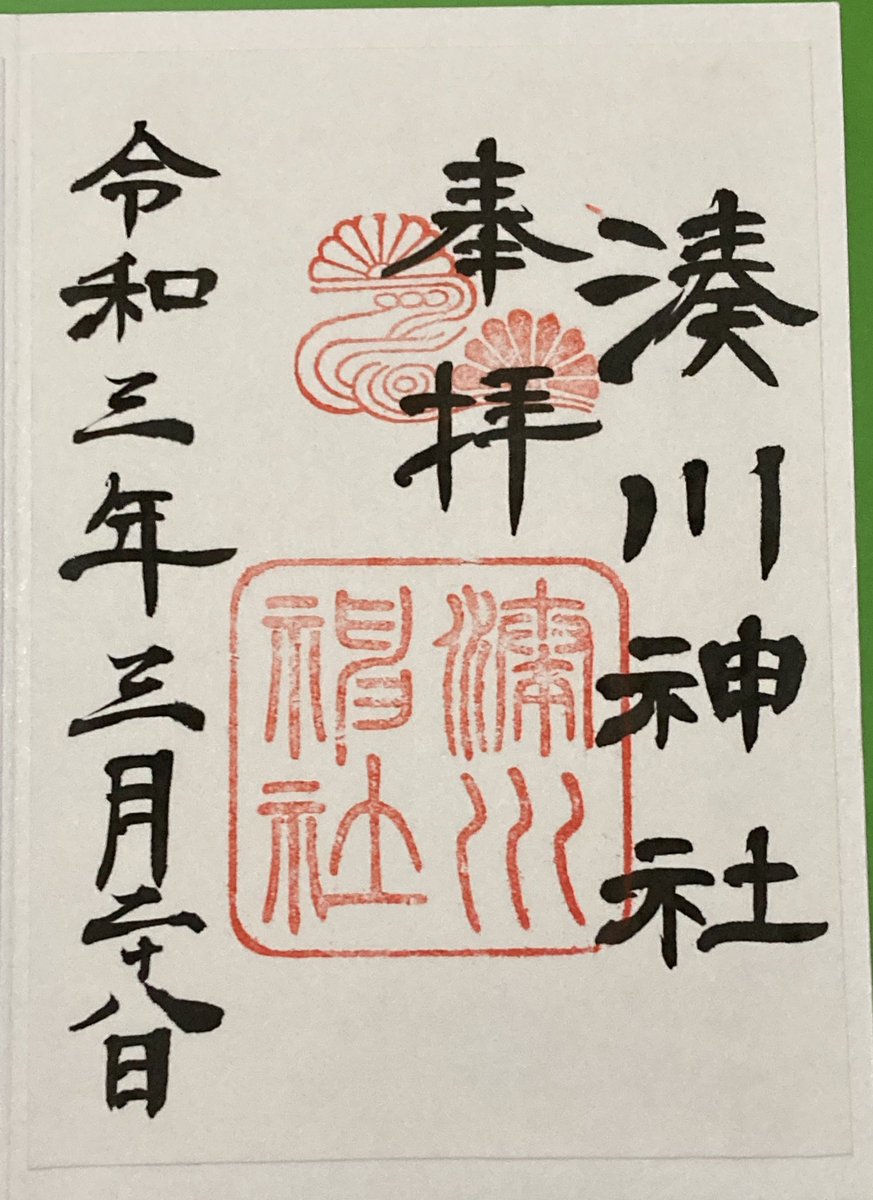 湊川神社
奉拝
湊川
神社
令和三年三月二十八日